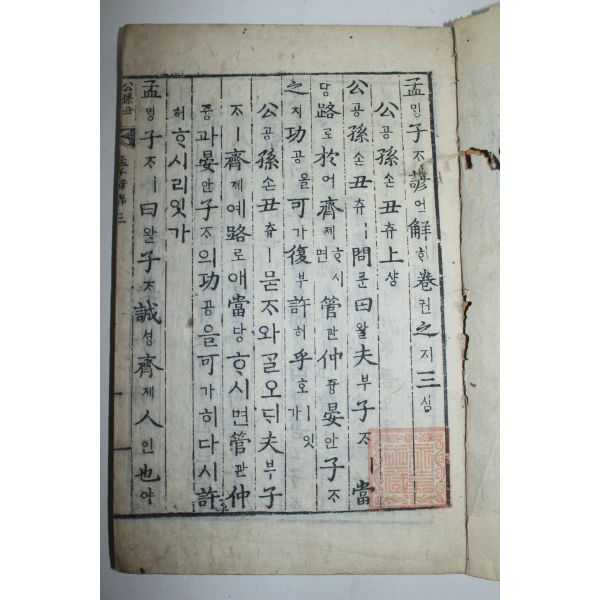 孟ᄆᆡᆼ子ᄌᆞ諺언解ᄒᆡ卷권之지三삼
公공孫손丑츄上샹
公공孫손丑츄ㅣ問문曰왈夫부子ᄌᆞㅣ當
당路로於어齊졔ᄒᆞ시면管관仲즁晏안子ᄌᆞ
之지功공을可가復부許허乎호ㅣ잇가
公공孫손丑츄ㅣ묻ᄌᆞ와ᄀᆞᆯ오ᄃᆡ夫부子
ᄌᆞㅣ齊졔예路로애當당ᄒᆞ시면管관仲
즁과晏안子ᄌᆞ의功공을可가히다시許
허ᄒᆞ시리잇가
孟ᄆᆡᆼ子ᄌᆞㅣ曰왈子ᄌᆞ誠셩齊졔人인也야
公孫丑